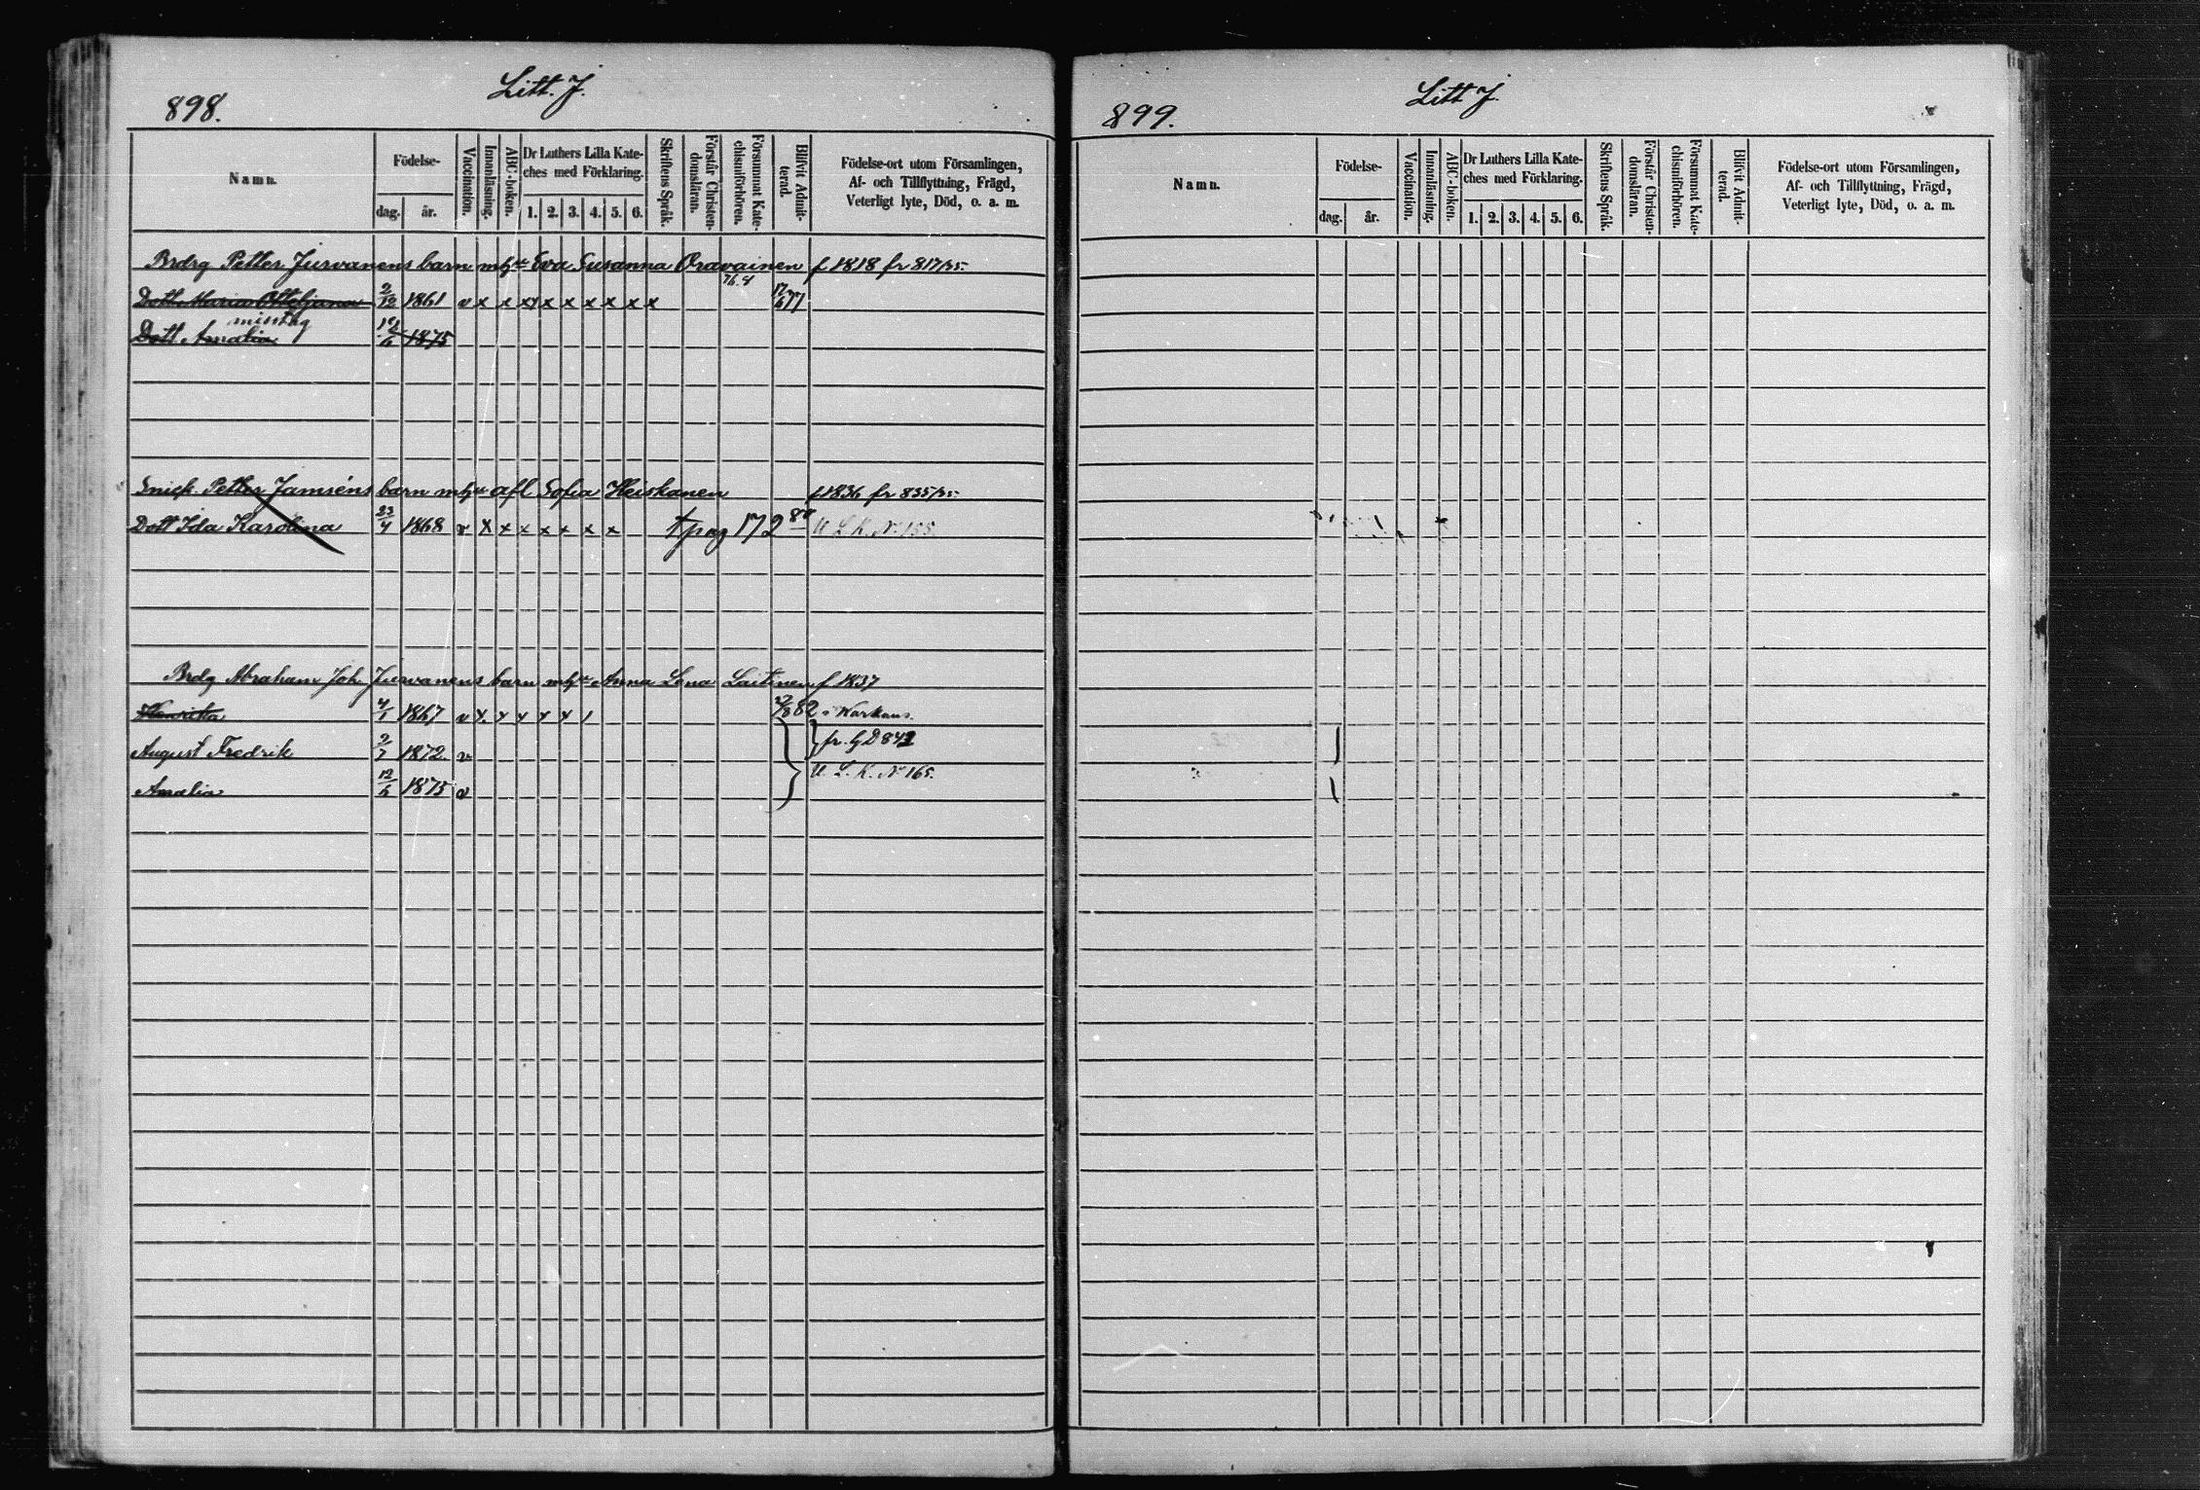 898.
Litt. J.
Namn.
Födelse-
dag. år.
Vaccination.
Innanläsning.
ABC-boken.
Dr Luthers Lilla Kate-
ches med Förklaring.
1. 2. 3. 4. 5. 6.
Skriftens Språk.
Förstår Christen-
domsläran.
Försummat Kate-
chismiförhören.
Blifvit Admit-
terad.
Födelse-ort utom Församlingen,
Af- och Tillflyttning, Frägd,
Veterligt lyte, Död, o. a. m.
Brdrg Petter Jurvanens barn m hu Eva Susanna Oravainen f 1818 fr 817/35.
76.4
Dott. Maria Ottiljana 2/12 1861 v x x x x x x x x x 17/6 77
misstag
Dott Amalia 12/6 1875
Snick. Petter Jamséns barn m hu afl Sofia Heiskanen f 1836 fr 835/35.
Dott Ida Karolina 23/4 1868 v x x x x x x x † pag 172 80 U. L. K. N. 155.
Brdg Abraham Joh. Jurvanens barn m hu Anna Lena Laitinen f 1837
Henrika 4/1 1867 v x x x x x 1 82 Warkaus.
August Fredrik 2/7 1872. v fr. GD 842
U. L. K. N. 165.
Amalia 12/6 1875 v
899.
Litt J.
Namn.
Födelse-
dag. år.
Vaccination.
Innanläsning.
ABC-boken.
Dr Luthers Lilla Kate-
ches med Förklaring.
1. 2. 3. 4. 5. 6.
Skriftens Språk.
Förstår Christen-
domsläran.
Försummat Kate-
chismiförhören.
Blifvit Admit-
terad.
Födelse-ort utom Församlingen,
Af- och Tillflyttning, Frägd,
Veterligt lyte, Död, o. a. m.